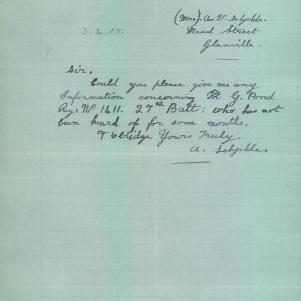 (Mrs). A. V.
Maud Street
Glanville.
3. 2. 18.
Sir,
Could you please give me any
Information concerning Pt G. Pond
Reg: Nº 1411. 27th Batt: who has not
been heard of for some months.
& Oblidge Yours Truly.
A.